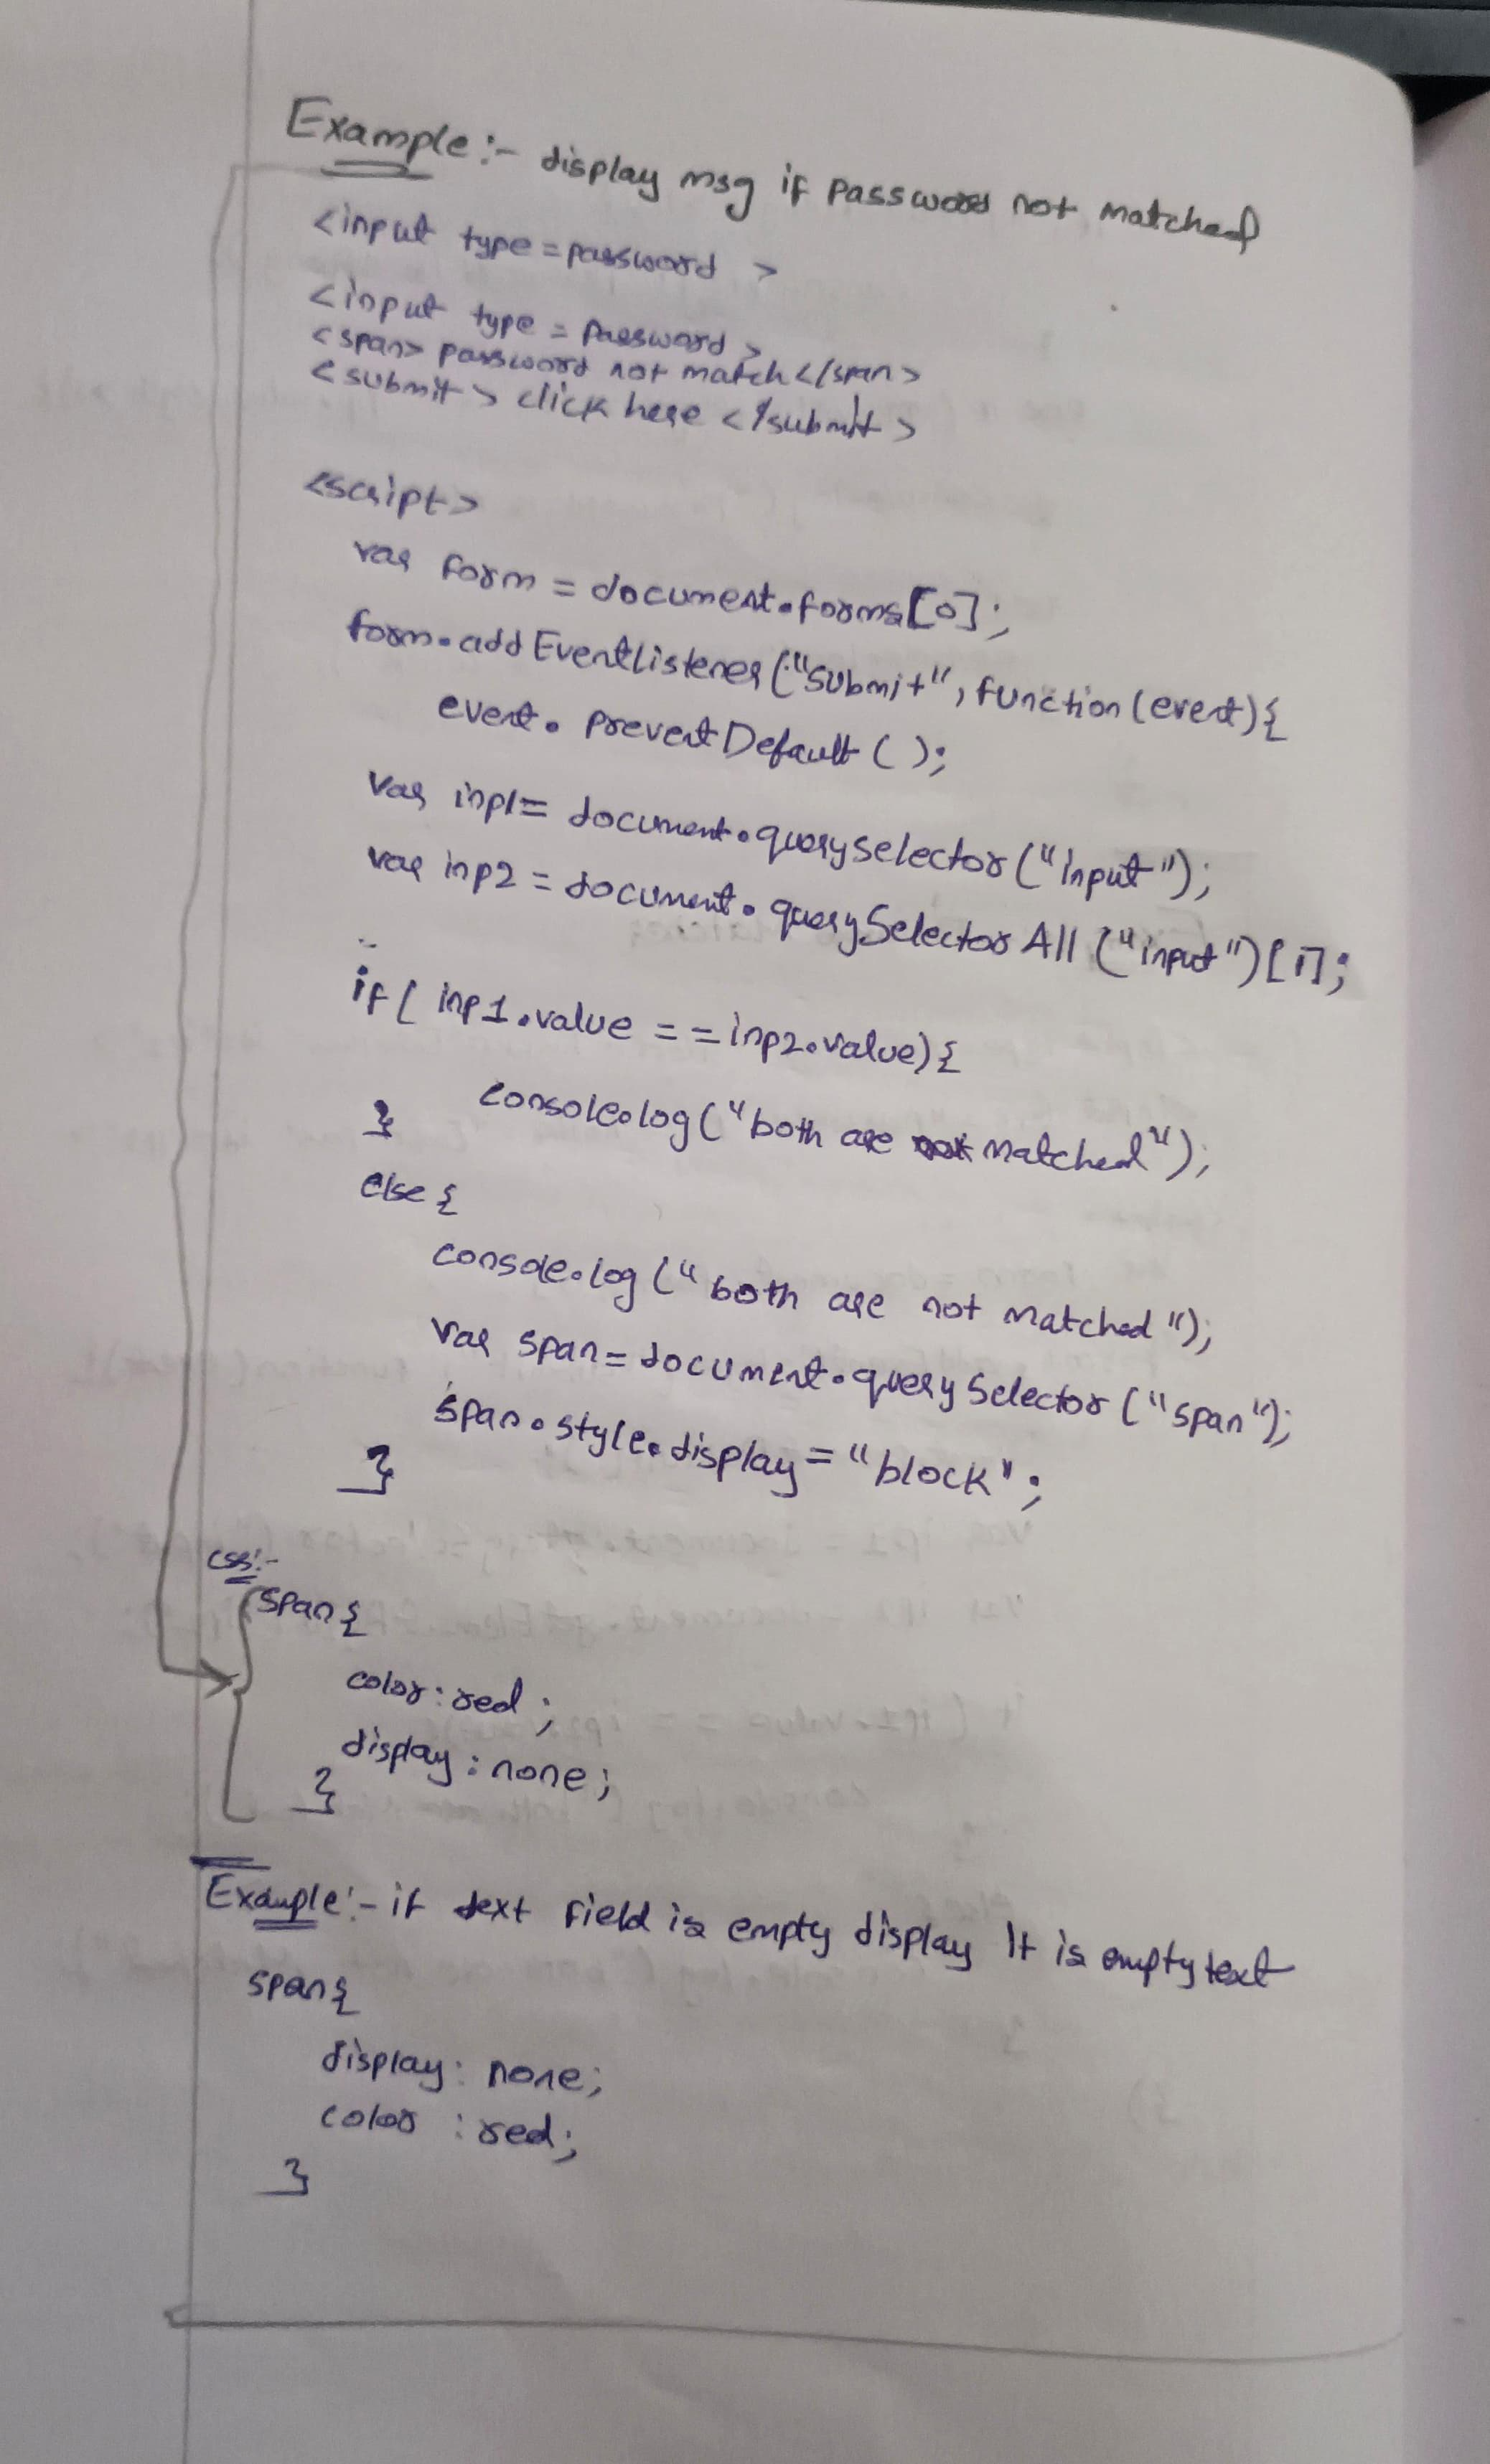 Example:- display msg if password not matched
<input type=password >
<input type = password>
<span> password not match </span>
<submit> click here </submit>
<script>
var form = document.forms[0];
form.addEventListener("submit", function(event){
event.preventDefault();
var inp1= document.querySelector("input");
var inp2 = document.querySelectorAll("input")[1];
if( inp1.value == inp2.value){
console.log("both are matched");
}
else {
console.log("both are not matched");
var span= document.querySelector("span");
span.style.display = "block";
}
css:-
span{
color: red;
display: none;
}
Example:- if text field is empty display It is empty text
span{
display: none;
color : red;
}